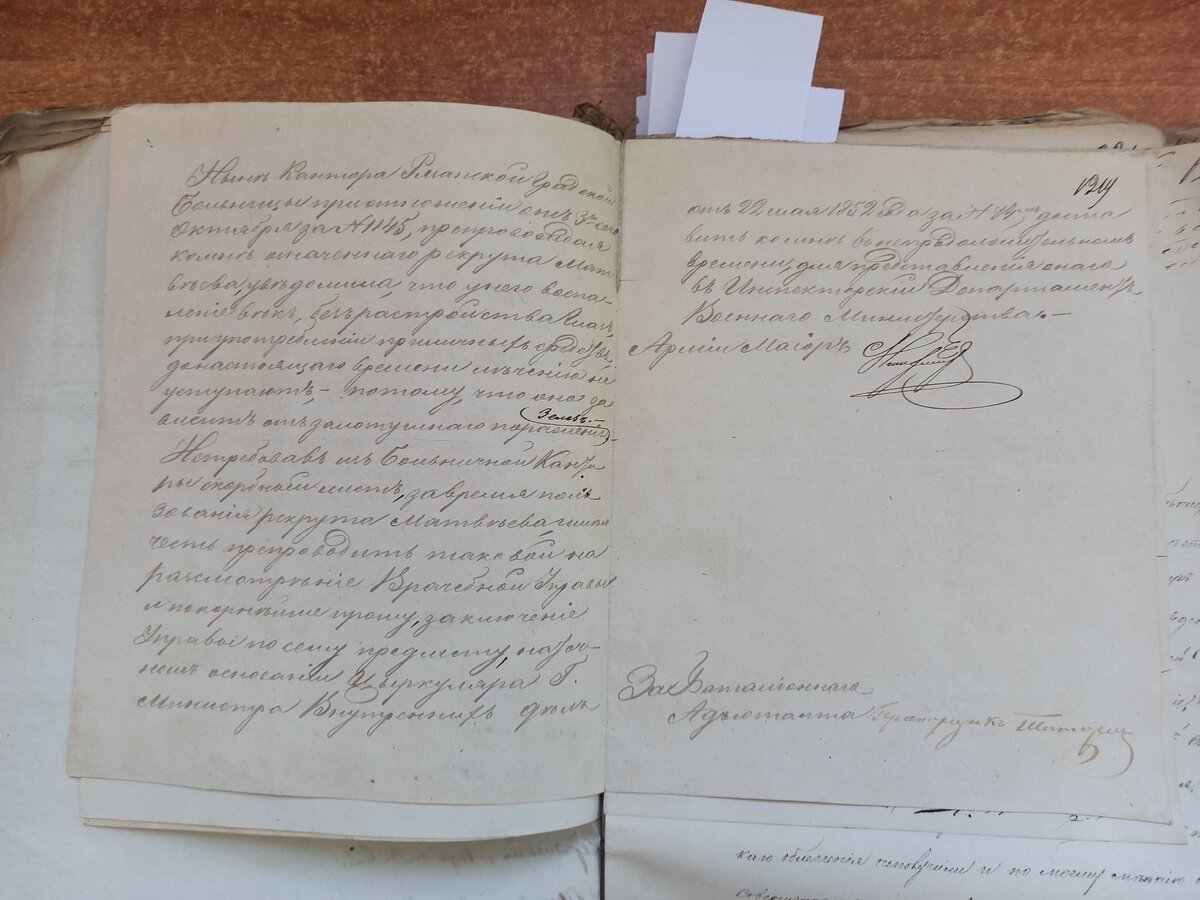 Нынѣ Кантора Рязанской Градской
Больницы при отношеніи отъ 3го сего
Октября за №1145, препровождая
комнѣ означеннаго рекрута Мат
вѣева, увѣдомила, что унего воспа-
леніе вѣкъ, безъ разстройства Глазъ,
приупотребленіи приличныхъ средствъ,
до настоящаго времени лѣченію не
уступаютъ,- потому, что оно за
виситъ отъ золотушнаго пораженія,-
Истребовавъ изъ Больничной Канто
ры скорбный листъ, за время поль
зованія рекрута Матвѣева, имѣю
честь препроводить таковой на
разсмотрѣніе Врачебной Управы
и покорнѣйше прошу, заключеніе
Управы по сему предмету, на точ-
номъ основаніи Циркуляра Г.
Министра Внутреннихъ дѣлъ
1214
отъ 22 мая 1852 года за № доста
вить комнѣ въ непродолжительномъ
времени, для представленія онаго
въ Инспекторскій Департаментъ
Военнаго Министерства.-
Арміи Маіоръ
За Баталіоннаго
Адъютанта
каю облегченія
и по моему мнѣнію